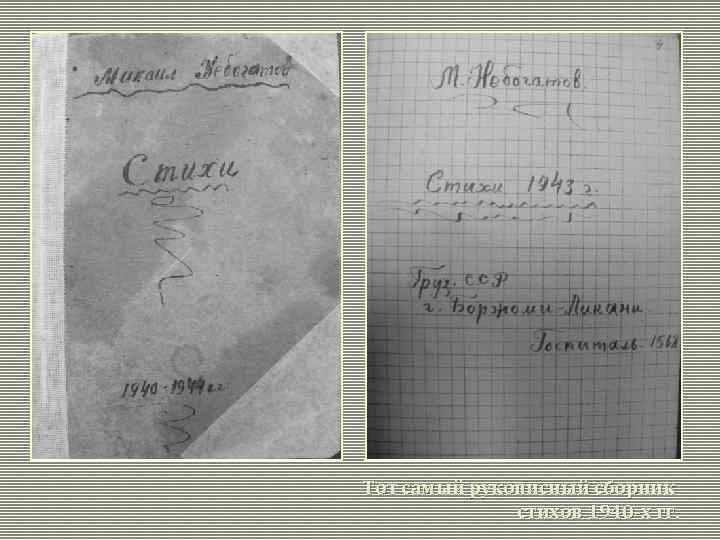 Михаил Небогатов
Стихи
1940-1944 гг.
М. Небогатов.
Стихи 1943 г.
Груз. ССР
г. Боржоми-Ликани.
Госпиталь 1568
Тот самый рукописный сборник
стихов 1940-х гг.